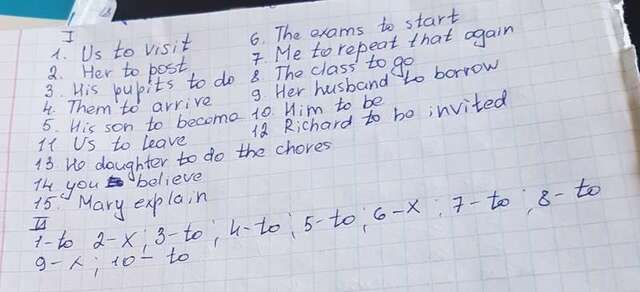 I
1. Us to visit
2. Her to post
3. His pupits to do
4. Them to arrive
5. His son to become
11 Us to leave
13. He daughter to do the chores
14 you believe
15. Mary explain
6. The exams to start
7. Me to repeat that again
8 The class to go
9. Her husband to borrow
10. Him to be
12 Richard to be invited
II
1-to 2-x; 3-to; 4-to; 5-to; 6-x; 7-to; 8-to
9-x; 10-to